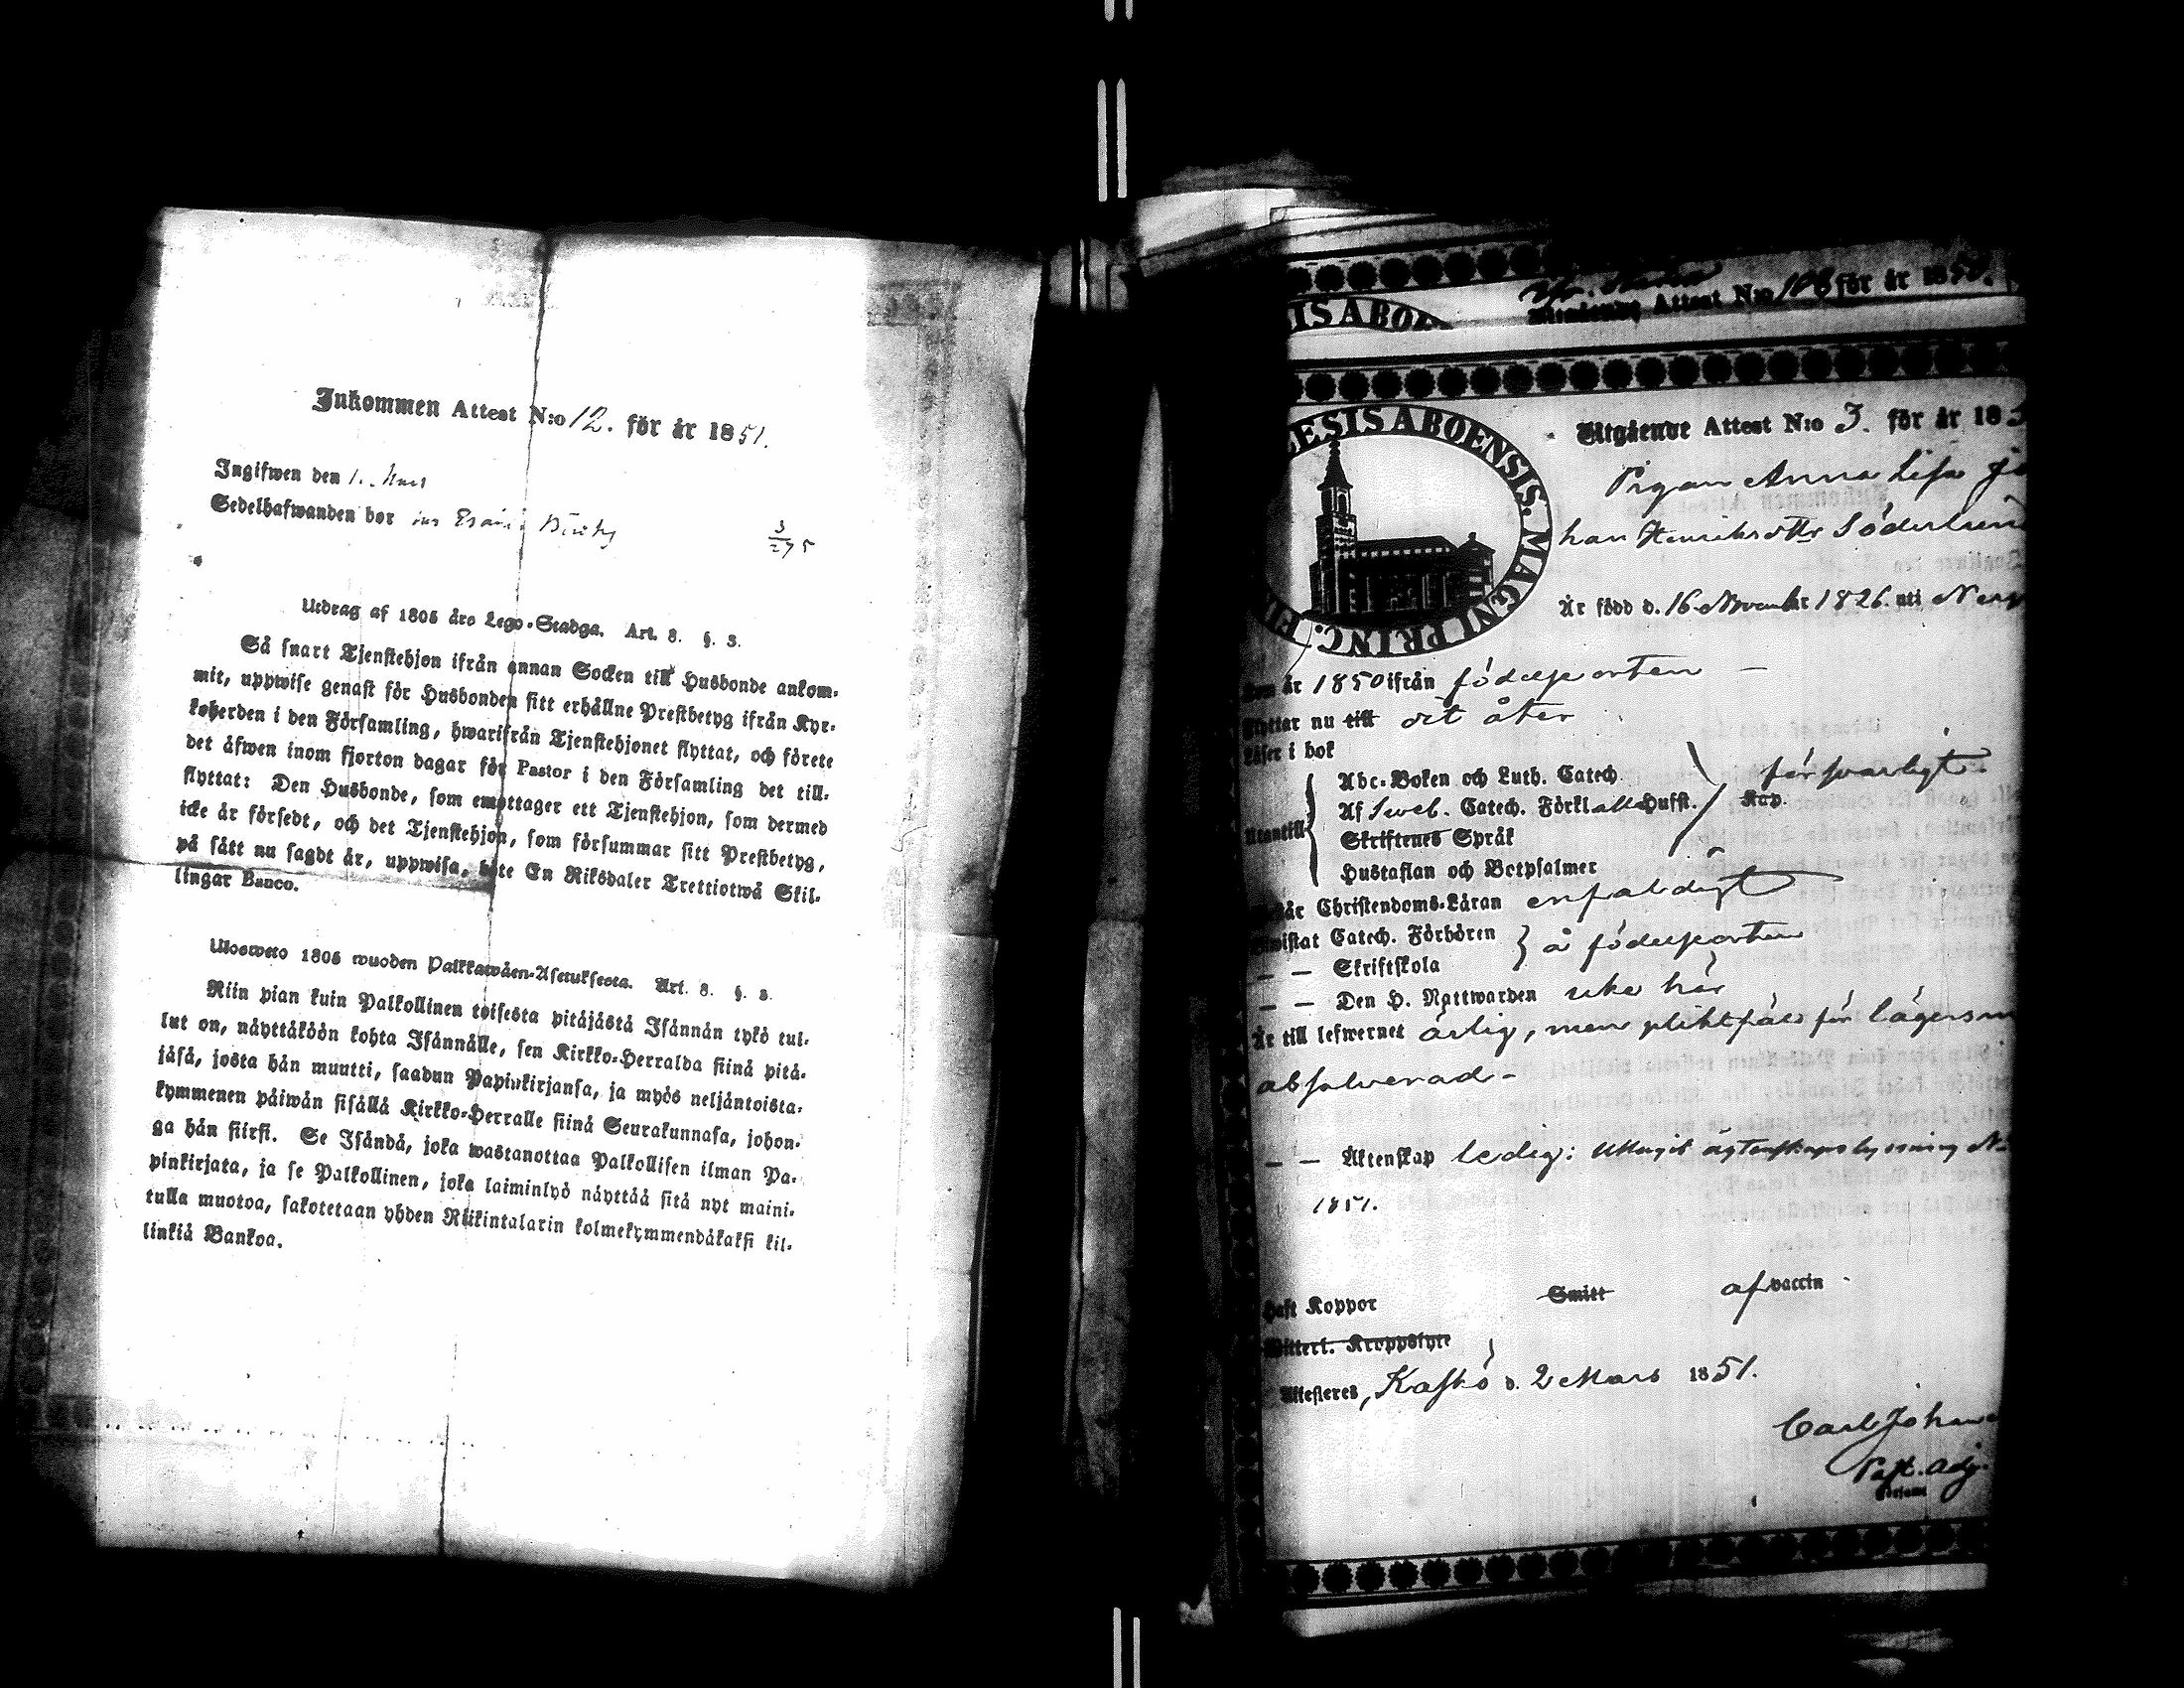 Inkommen Attest N:o 12. för år 1851.
Ingifwen den 1. Mars
Sedelhafwanden bor hos
3
275
Utdrag af 1805 års Lego-Stadga. Art. 8. §. 3.
Så snart Tjenstehjon ifrån annan Socken till Husbonde ankom-
mit, uppwise genast för Husbonden sitt erhållne Prestbetyg ifrån Kyr-
koherden i den Församling, hwarifrån Tjenstehjonet flyttat, och förete
det åfwen inom fjorton dagar för Pastor i den Församling det till-
flyttat: Den Husbonde, som emottager ett Tjenstehjon, som dermed
icke är försedt, och det Tjenstehjon, som försummar sitt Prestbetyg,
på sått nu sagdt är, uppwisa, böte En Riksdaler Trettiotwå Skil-
lingar Banco.
Ulosweto 1805 wuoden Palkkawåen-Asetuksesta. Art. 8. §. 3.
Niin pian kuin Palkollinen toisesta pitäjästä Isännän tykö tul-
lut on, näyttäköön kohta Isännälle, sen Kirkko-Herralda siinä pitä-
jäsä, josta hän muutti, saadun Papinkirjansa, ja myös neljäntoista-
kymmenen päiwän sisällä Kirkko-Herralle siinä Seurakunnasa, johon-
ga hän siirsi. Se Isändä, joka wastanottaa Palkollisen ilman Pa-
pinkirjata, ja se Palkollinen, joka laiminlyö näyttää sitä nyt maini-
tulla muotoa, sakotetaan yhden Riikintalarin kolmekymmendäkaksi kil-
linkiä Bankoa.
Attest N:o 108 för år 185
SIS ABOE
ESIS ABOENSIS. MAGNI PRINC. FI
Utgående Attest N:o 3. för år 185
Pigan Anna Lisa Jo
han Henriksdttr Söderlun
Är född d. 16 November 1826. uti Nerp
år 1850 ifrån födelseorten –
flyttar nu till dit åter
Läser i bok
Abc-Boken och Luth. Catech. försvarligt.
Utantill Af Sveb. Catech. Förkl. alla Husfl. Kap.
Skriftenes Språk
Hustaflan och Botpsalmer
Christendoms-Läran enfaldigt
Catech. Förhören å födelseorten
– – Skriftskola
– – Den H. Nattwarden icke här
Är till lefwernet ärlig, men pliktfäld för lägersm
absolverad –
– – Äktenskap ledig: uttagit ägtenskapslysning N:
1851.
Haft Koppor Smitt af vaccin
Wittert. Kroppslyte
Attesteres, Kaskö d. 2 Mars 1851.
Carl Johan
Past. Adj.